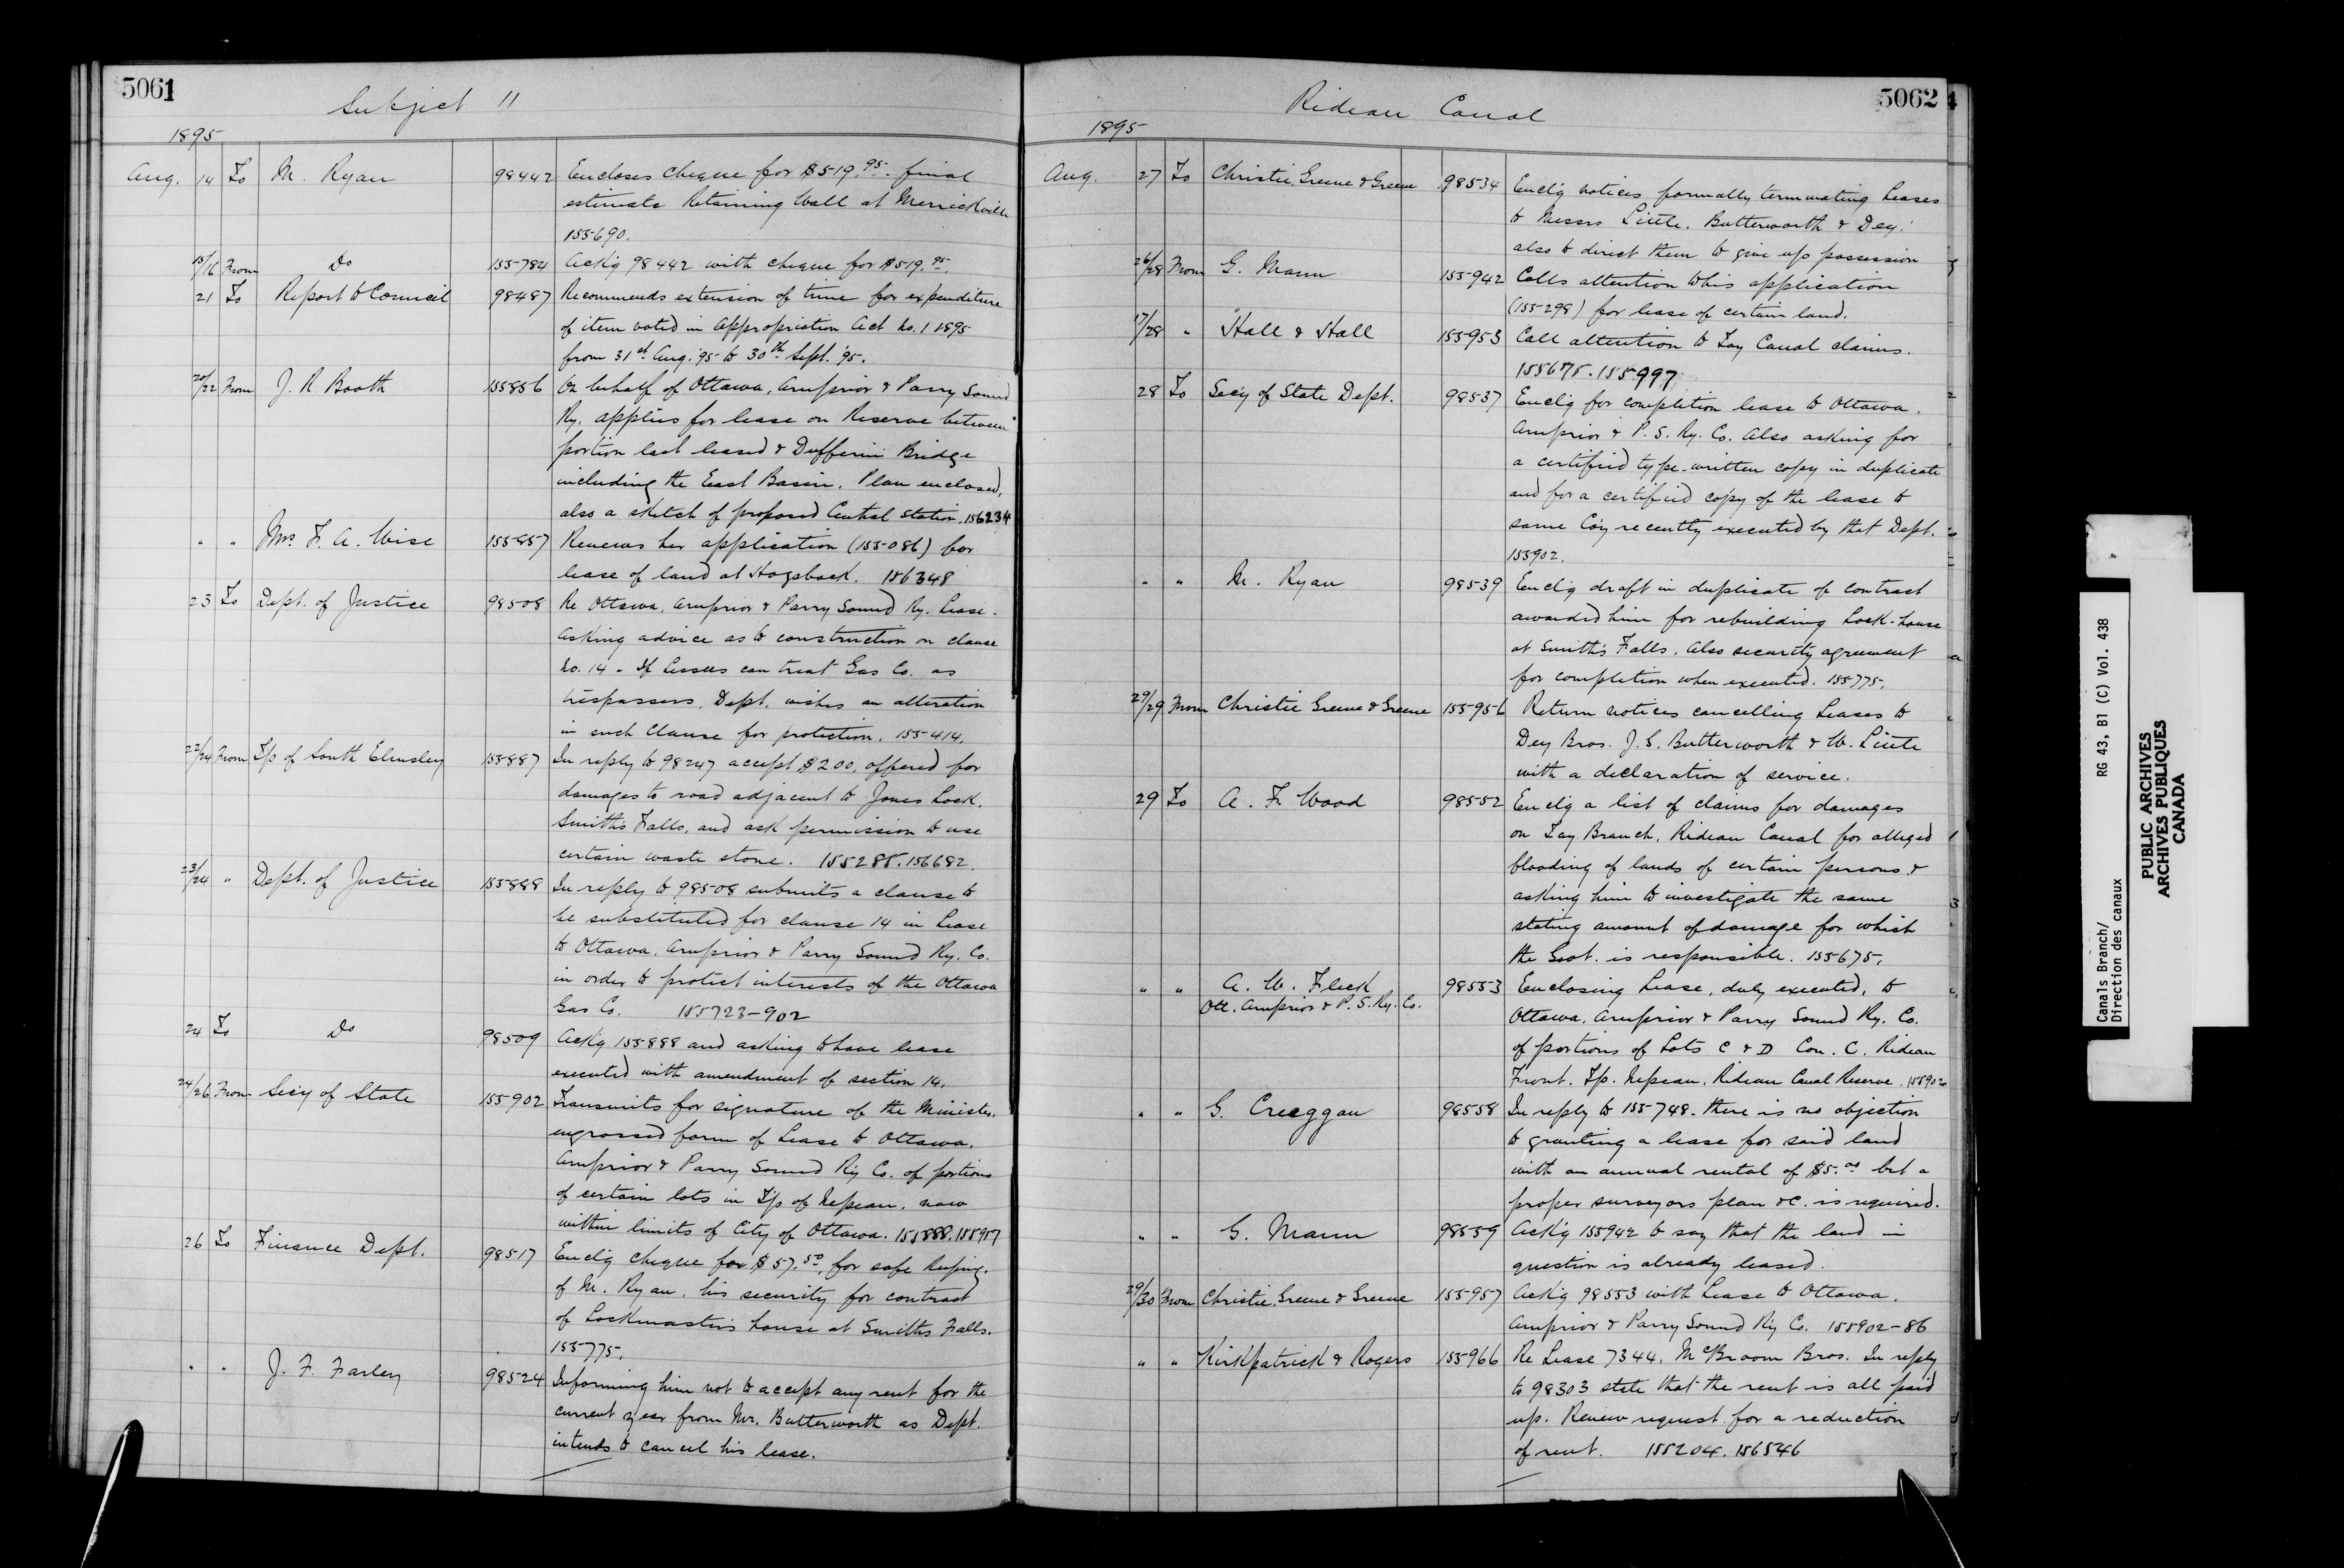 5061
Subject 11
1895
Aug. 14 To M. Ryan 98442 Encloses cheque for $519.95 final
estimate Retaining Wall at Merrickville
155690.
15/16 From Do 155784 Ack'g 98442 with cheque for $519.95.
21 To Report to Council 98487 Recommends extension of time for expenditure
of item voted in Appropriation Act No. 1 1895
from 31st Aug. '95 to 30th Sept. '95.
20/22 From J. R. Booth 155856 On behalf of Ottawa, Arnprior & Parry Sound
Ry. applies for lease on Reserve between
portion last leased & Dufferin Bridge
including the East Basin. Plan enclosed,
also a sketch of proposed Central Station. 156234
" " Mrs F. A. Wise 155857 Renews her application (155086) for
lease of land at Hogsback. 156348
23 To Dept. of Justice 98508 Re Ottawa, Arnprior & Parry Sound Ry. Lease.
Asking advice as to construction on clause
No. 14 - If lessees can treat Gas Co. as
trespassers, Dept. wishes an alteration
in such Clause for protection. 155414.
22/24 From T/p of South Elmsley 155887 In reply to 98247 accept $200, offered for
damages to road adjacent to Jones Lock,
Smith's Falls, and ask permission to use
certain waste stone. 155285.156682.
23/24 " Dept. of Justice 155888 In reply to 98508 submits a clause to
be substituted for clause 14 in Lease
to Ottawa, Arnprior & Parry Sound Ry. Co.
in order to protect interests of the Ottawa
Gas Co. 155723-902
24 To Do 98509 Ack'g 155888 and asking to have lease
executed with amendment of section 14.
24/26 From Sec'y of State 155902 Transmits for signature of the Minister,
engrossed form of Lease to Ottawa,
Arnprior & Parry Sound Ry Co. of portions
of certain lots in T/p of Nepean, now
within limits of City of Ottawa. 155888.155957
26 To Finance Dept. 98517 Encl'g cheque for $57.50, for safe keeping,
of M. Ryan, his security for contract
of Lockmaster's house at Smiths Falls.
155775.
" " J. F. Farley 98524 Informing him not to accept any rent for the
current year from Mr. Butterworth as Dept.
intends to cancel his lease.
5062
Rideau Canal
1895
Aug. 27 To Christie, Greene & Greene 98534 Encl'g notices formally terminating Leases
to Messrs Little, Butterworth & Dey.
also to direct them to give up possession
26/28 From G. Mann 155942 Calls attention to his application
(155298) for lease of certain land.
17/28 " Hall & Hall 155953 Call attention to Tay Canal claims.
155675.155997
28 To Sec'y of State Dept. 98537 Encl'g for completion lease to Ottawa,
Arnprior & P. S. Ry. Co. Also asking for
a certified type-written copy in duplicate
and for a certified copy of the lease to
same Co'y recently executed by that Dept.
155902.
" " M. Ryan 98539 Encl'g draft in duplicate of contract
awarded him for rebuilding Lock-house
at Smith's Falls. Also security agreement
for completion when executed. 155775.
29/29 From Christie Greene & Greene 155956 Return notices cancelling Leases to
Dey Bros. J. S. Butterworth & W. Little
with a declaration of service.
29 To A. F. Wood 98552 Encl'g a list of claims for damages
on Tay Branch, Rideau Canal for alleged
flooding of lands of certain persons &
asking him to investigate the same
stating amount of damage for which
the Govt. is responsible. 155675.
" " A. W. Fleck 98553 Enclosing Lease, duly executed, to
Ott. Arnprior & P. S. Ry. Co.
Ottawa, Arnprior & Parry Sound Ry. Co.
of portions of Lots C & D Con. C. Rideau
Front. T/p. Nepean. Rideau Canal Reserve. 155902
" " G. Creeggan 98558 In reply to 155748. there is no objection
to granting a lease for said land
with an annual rental of $5.00 but a
proper surveyors plan &c. is required.
" " G. Mann 98559 Ack'g 155942 to say that the land in
question is already leased.
29/30 From Christie, Greene & Greene 155957 Ack'g 98553 with Lease to Ottawa,
Arnprior & Parry Sound Ry Co. 155902-86
" " Kirkpatrick & Rogers 155966 Re Lease 7344. McBroom Bros. In reply
to 98303 state that the rent is all paid
up. Renew request for a reduction
of rent. 155204. 156546
Canals Branch/ RG 43, B1 (C) Vol. 438
Direction des canaux
PUBLIC ARCHIVES
ARCHIVES PUBLIQUES
CANADA